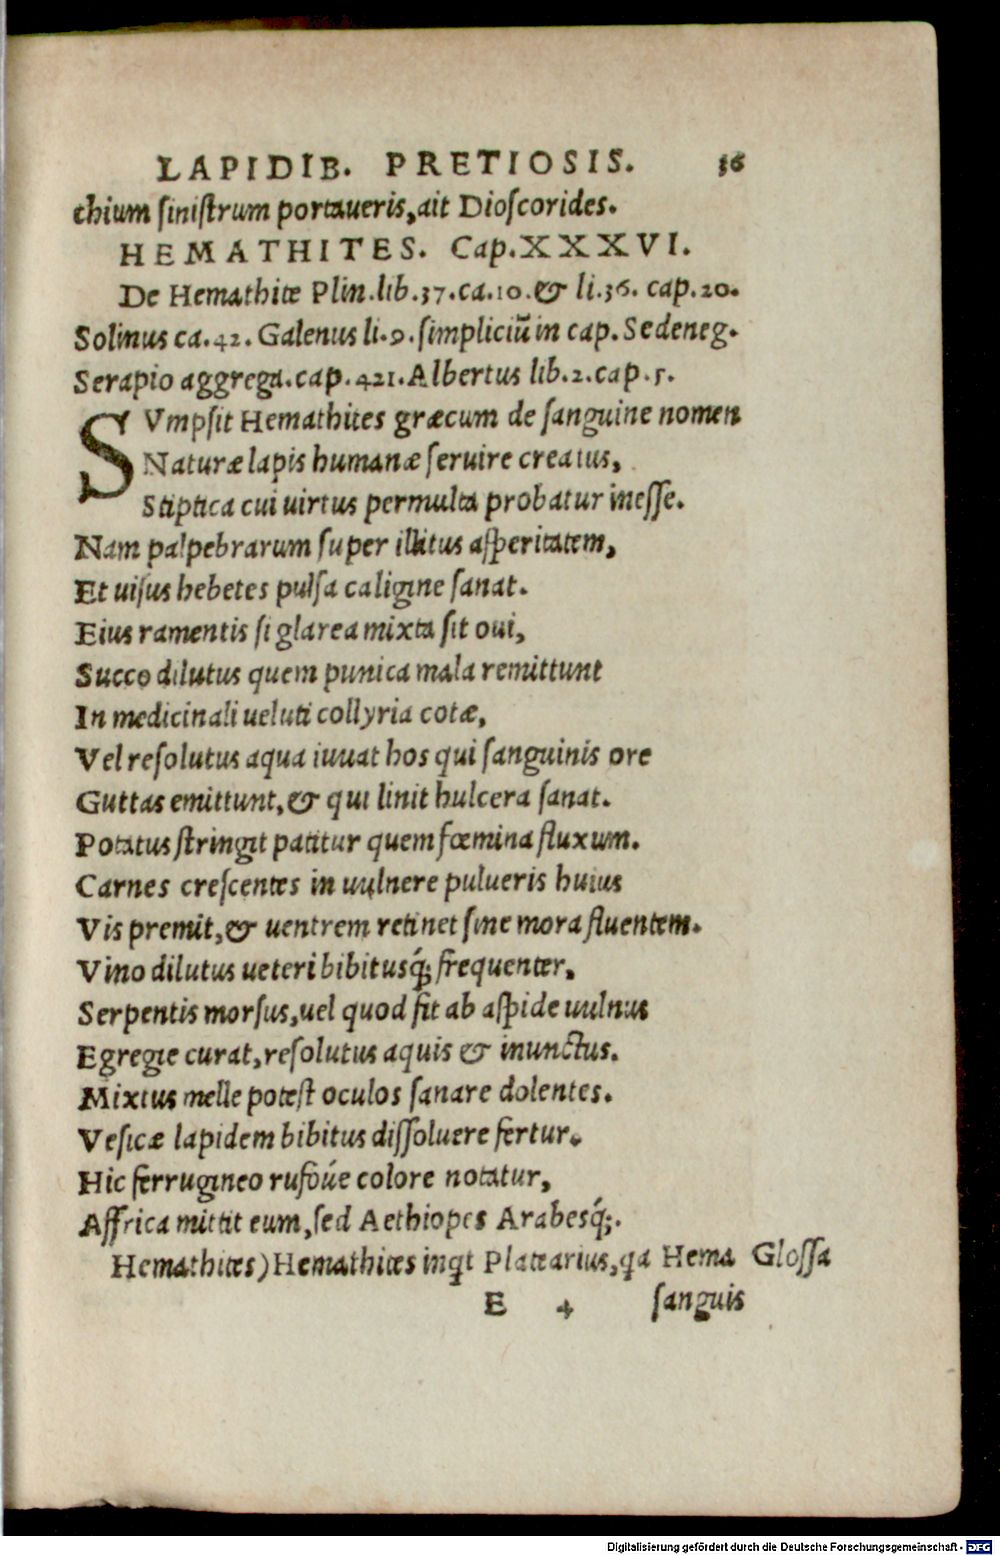 LAPIDIB. PRETIOSIS. 36
chium ſiniſtrum portaueris, ait Dioſcorides.
HEMATHITES. Cap. XXXVI.
De Hemathite Plin. lib. 37. ca. 10. & li. 36. cap. 20.
Solinus ca. 42. Galenus li. 9. ſimpliciũ in cap. Sedeneg.
Serapio aggrega. cap. 421. Albertus lib. 2. cap. 5.
SVmpſit Hemathites græcum de ſanguine nomen
Naturæ lapis humanæ ſeruire creatus,
Stiptica cui uirtus permulta probatur ineſſe.
Nam palpebrarum ſuper illitus aſperitatem,
Et uiſus hebetes pulſa caligine ſanat.
Eius ramentis ſi glarea mixta ſit oui,
Succo dilutus quem punica mala remittunt
In medicinali ueluti collyria cotæ,
Vel reſolutus aqua iuuat hos qui ſanguinis ore
Guttas emittunt, & qui linit hulcera ſanat.
Potatus ſtringit patitur quem fœmina fluxum.
Carnes creſcentes in uulnere pulueris huius
Vis premit, & uentrem retinet ſine mora fluentem.
Vino dilutus ueteri bibitusq́; frequenter,
Serpentis morſus, uel quod fit ab aſpide uulnus
Egregie curat, reſolutus aquis & inunctus.
Mixtus melle poteſt oculos ſanare dolentes.
Veſicæ lapidem bibitus diſſoluere fertur.
Hic ferrugineo rufóue colore notatur,
Affrica mittit eum, ſed Aethiopes Arabesq́;.
Hemathites) Hemathites inqt Platearius, qa Hema Gloſſa
E 4 ſanguis
Digitalisierung gefördert durch die Deutsche Forschungsgemeinschaft - DFG